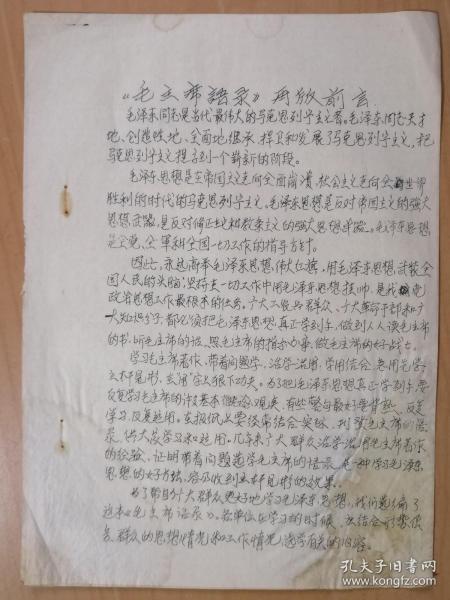 《毛主席語录》再版前言
毛泽东同志是当代最伟大的马克思列宁主义者。毛泽东同志天才
地、创造性地、全面地继承、捍卫和发展了马克思列宁主义，把
马克思列宁主义提高到一个崭新的阶段。
毛泽东思想是在帝国主义走向全面崩溃，社会主义走向全世界
胜利的时代的马克思列宁主义。毛泽东思想是反对帝国主义的强大
思想武器，是反对修正主义和教条主义的强大思想武器。毛泽东思想
是全党、全军和全国一切工作的指导方针。
因此，永远高举毛泽东思想伟大红旗，用毛泽东思想武装全
国人民的头脑，坚持在一切工作中用毛泽东思想挂帅，是我党
政治思想工作最根本的任务。广大工农兵群众、广大革命干部和广
大知识分子，都必须把毛泽东思想真正学到手，做到人人读毛主席
的书，听毛主席的话，照毛主席的指示办事，做毛主席的好战士。
学习毛主席著作，要带着问题学，活学活用，学用结合，急用先学，
立杆见影，在“用”字上狠下功夫。为了把毛泽东思想真正学到手，要
反复学习毛主席的许多基本观点，有些警句最好要背熟，反复
学习，反复运用。在报纸上要经常结合实际，刊登毛主席的语
录，供大家学习和运用。几年来广大群众活学活用毛主席著作
的经验，证明带着问题选学毛主席的语录，是一种学习毛泽东
思想的好方法，容易收到立杆见影的效果。
为了帮助广大群众更好地学习毛泽东思想，我们选编了
这本《毛主席语录》。各单位在学习的时候，应结合形势、任
务、群众的思想情况和工作情况，选学有关的内容。
孔夫子旧书网